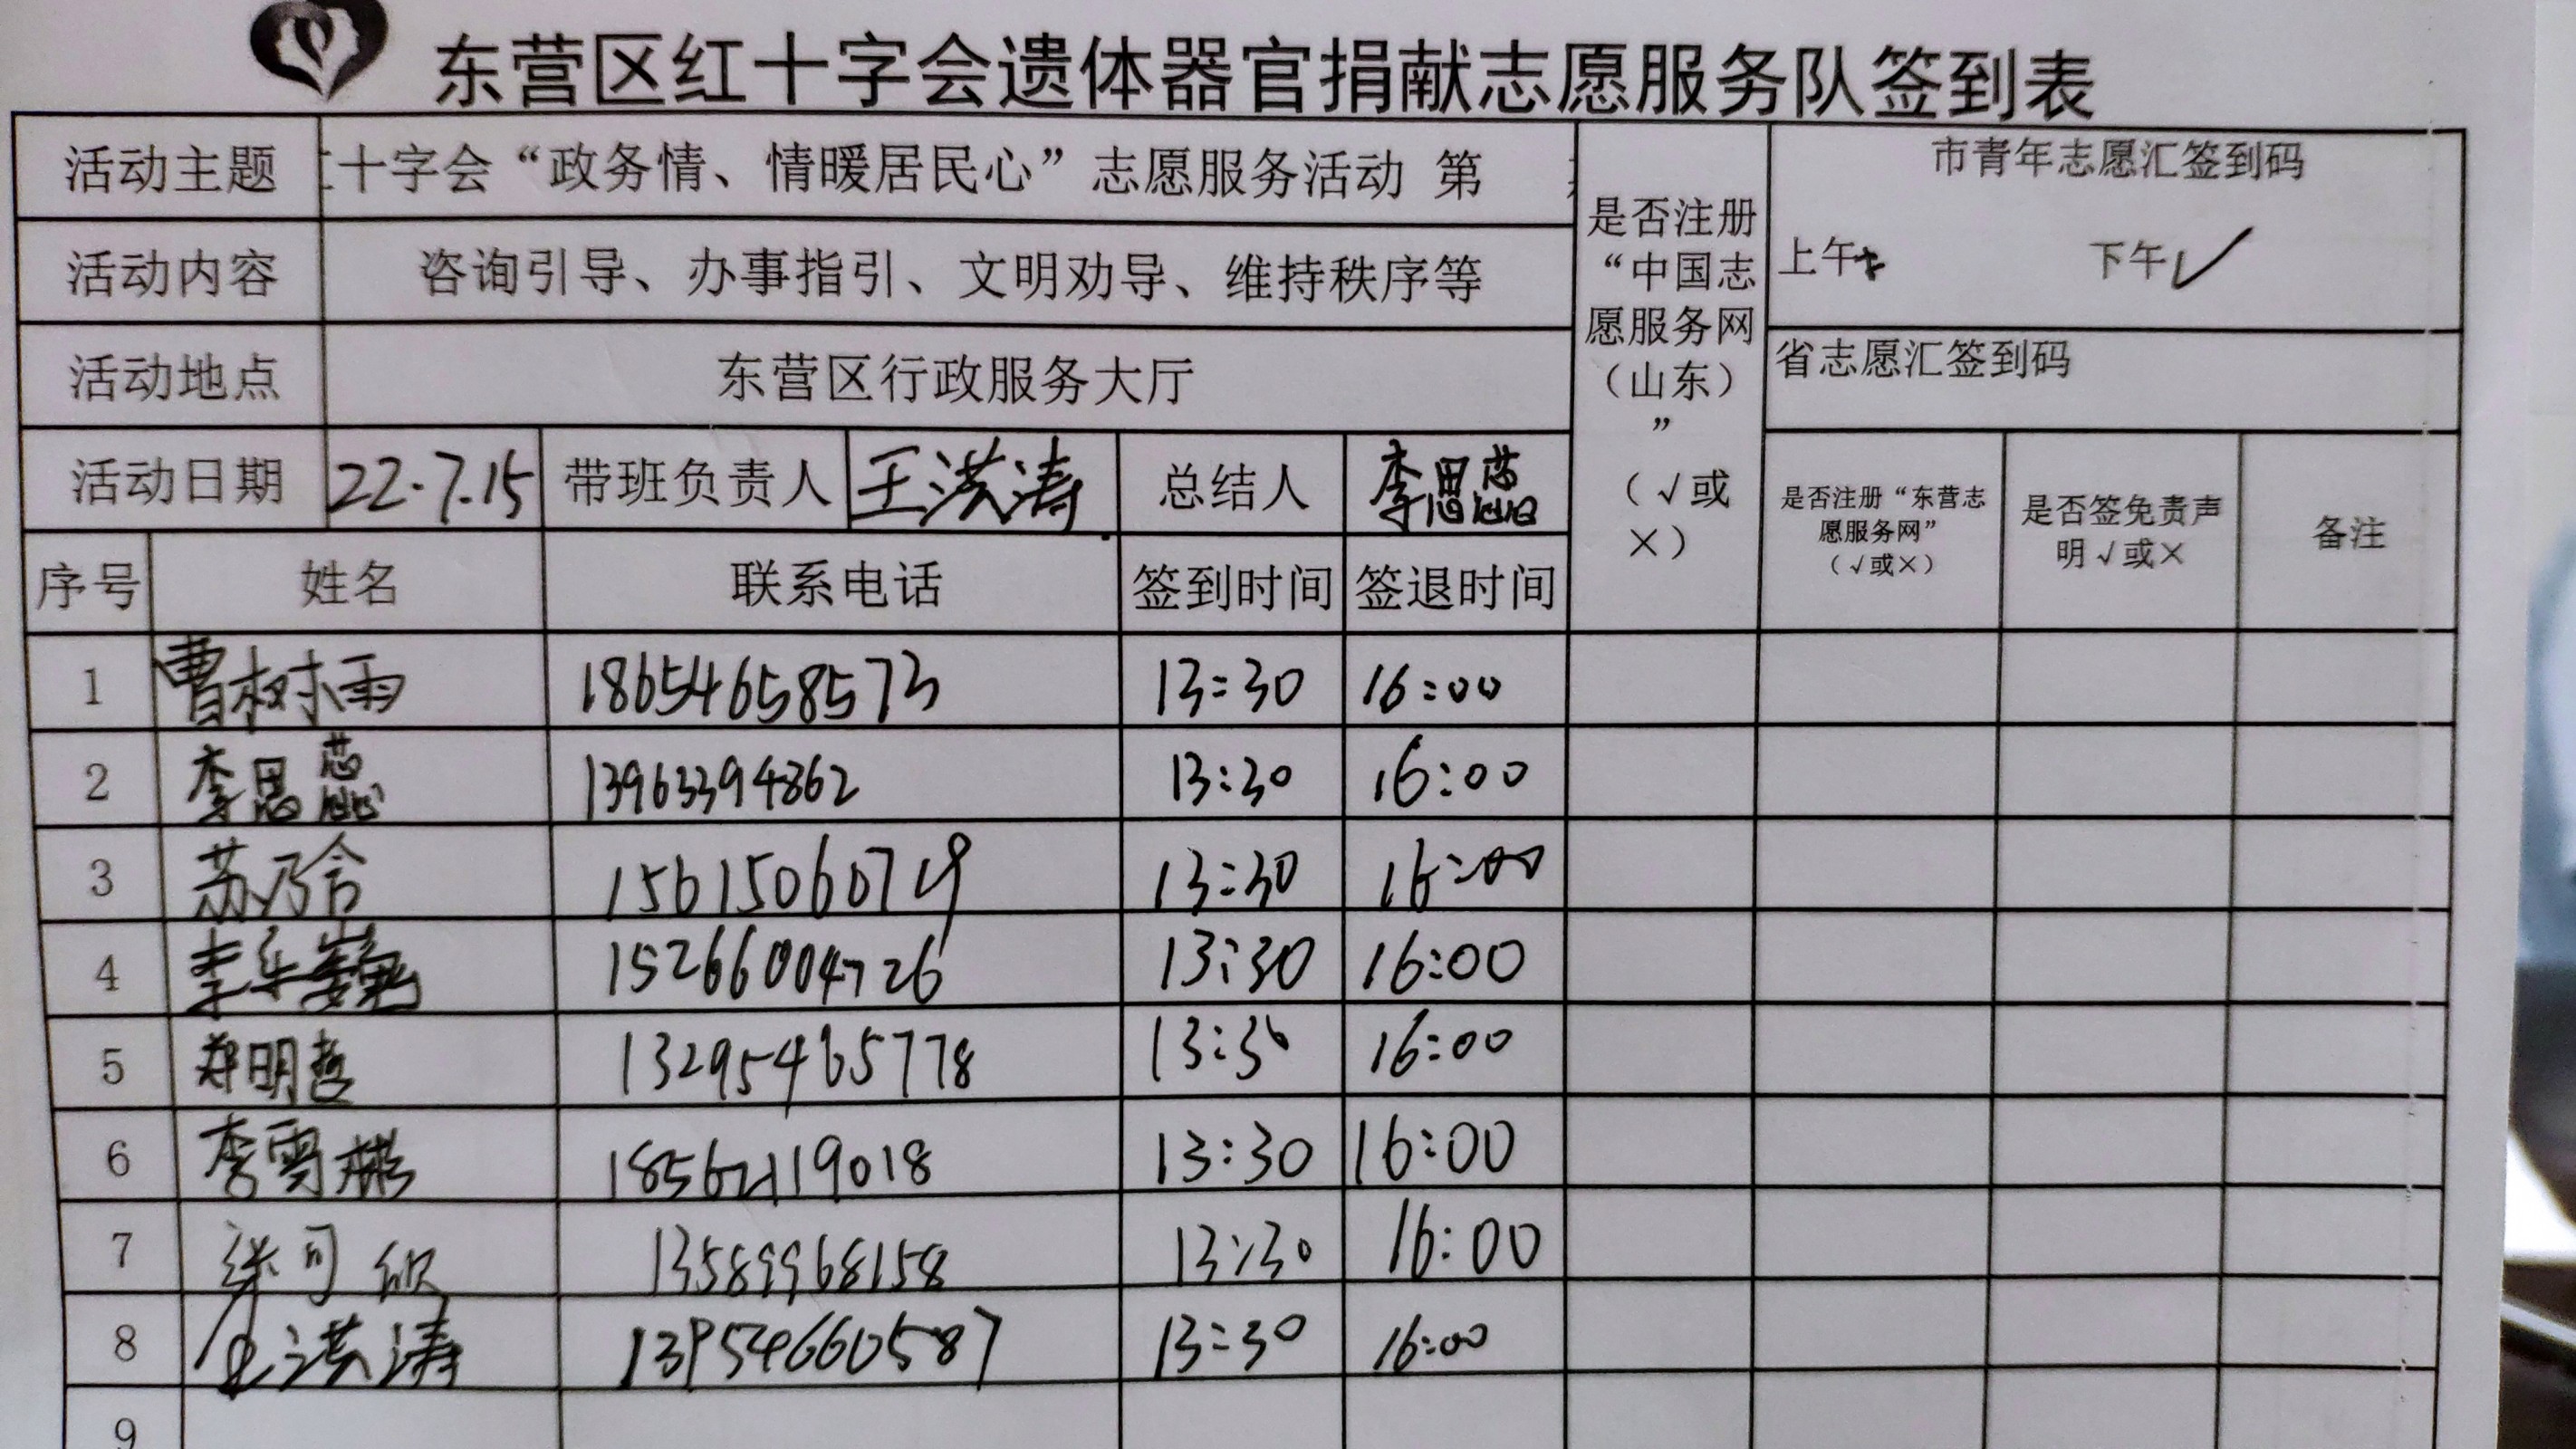 东营区红十字会遗体器官捐献志愿服务队签到表
活动主题 十字会“政务情、情暖居民心”志愿服务活动 第
活动内容 咨询引导、办事指引、文明劝导、维持秩序等
活动地点 东营区行政服务大厅
活动日期 22.7.15 带班负责人 王洪涛 总结人 李思蕊
是否注册
“中国志
愿服务网
（山东）
”
（√或
×）
市青年志愿汇签到码
上午× 下午√
省志愿汇签到码
是否注册“东营志
愿服务网”
（√或×）
是否签免责声
明√或×
备注
序号 姓名 联系电话 签到时间 签退时间
1 曹树雨 18654658573 13:30 16:00
2 李思蕊 13963394862 13:30 16:00
3 苏乃含 15615060719 13:30 16:00
4 李乐巍 15266004726 13:30 16:00
5 郑明哲 13295465778 13:30 16:00
6 李雪彬 18562119018 13:30 16:00
7 可欣 13589968158 13:30 16:00
8 王洪涛 13954660587 13:30 16:00
9